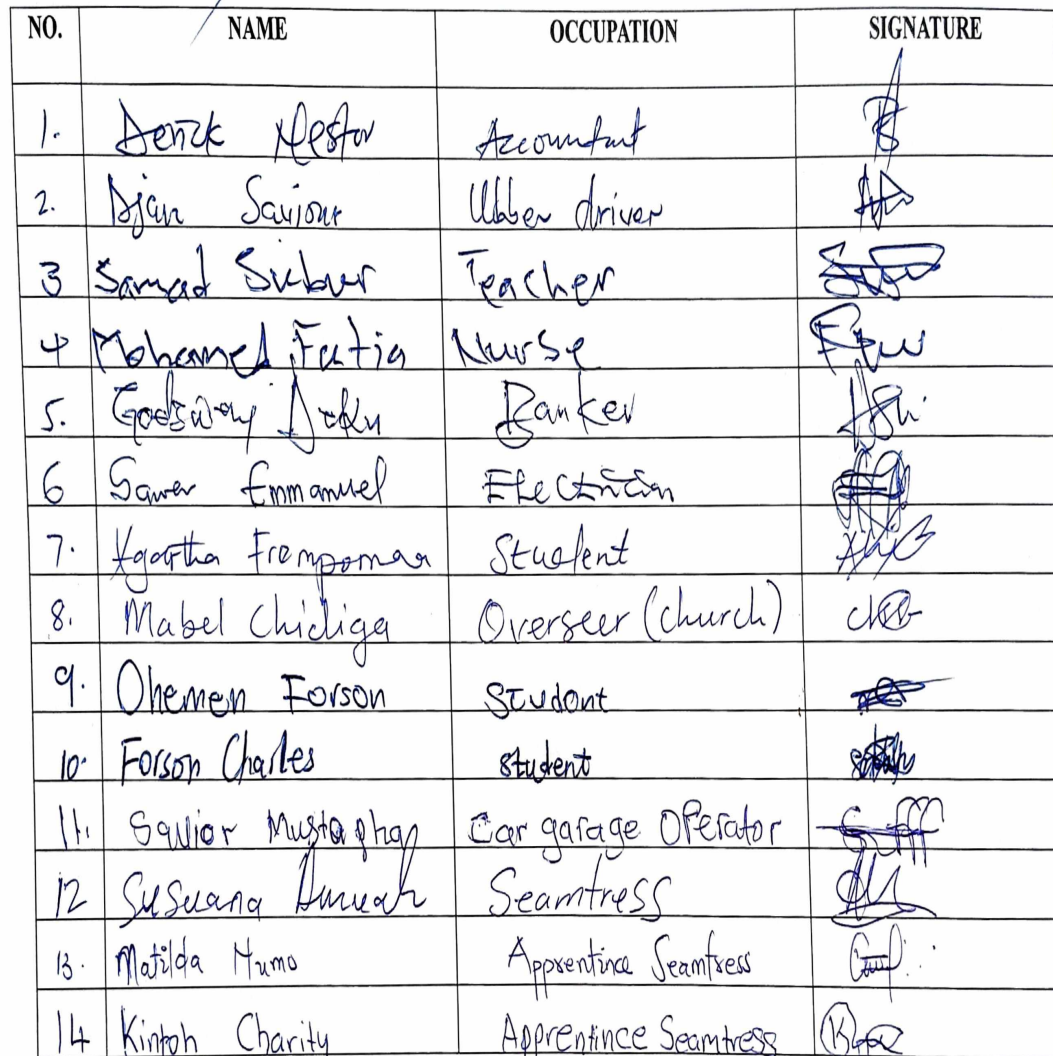 NO. NAME OCCUPATION SIGNATURE
1. Derick Nestor Accountant
2. Djan Saviour Ubber driver
3 Samad Subur Teacher
4 Mohamed Fatia Nurse
5. Godsway Doku Banker
6 Sawer Emmanuel Electrician
7. Agartha Frempomaa Student
8. Mabel Chidiga Overseer (church)
9. Ohemen Forson Student
10. Forson Charles student
11. Savior Mustaphap Car garage Operator
12 Susuana Amuah Seamtress
13. Matilda Mumo Apprentince Seamtress
14 Kintoh Charity Apprentince Seamtress